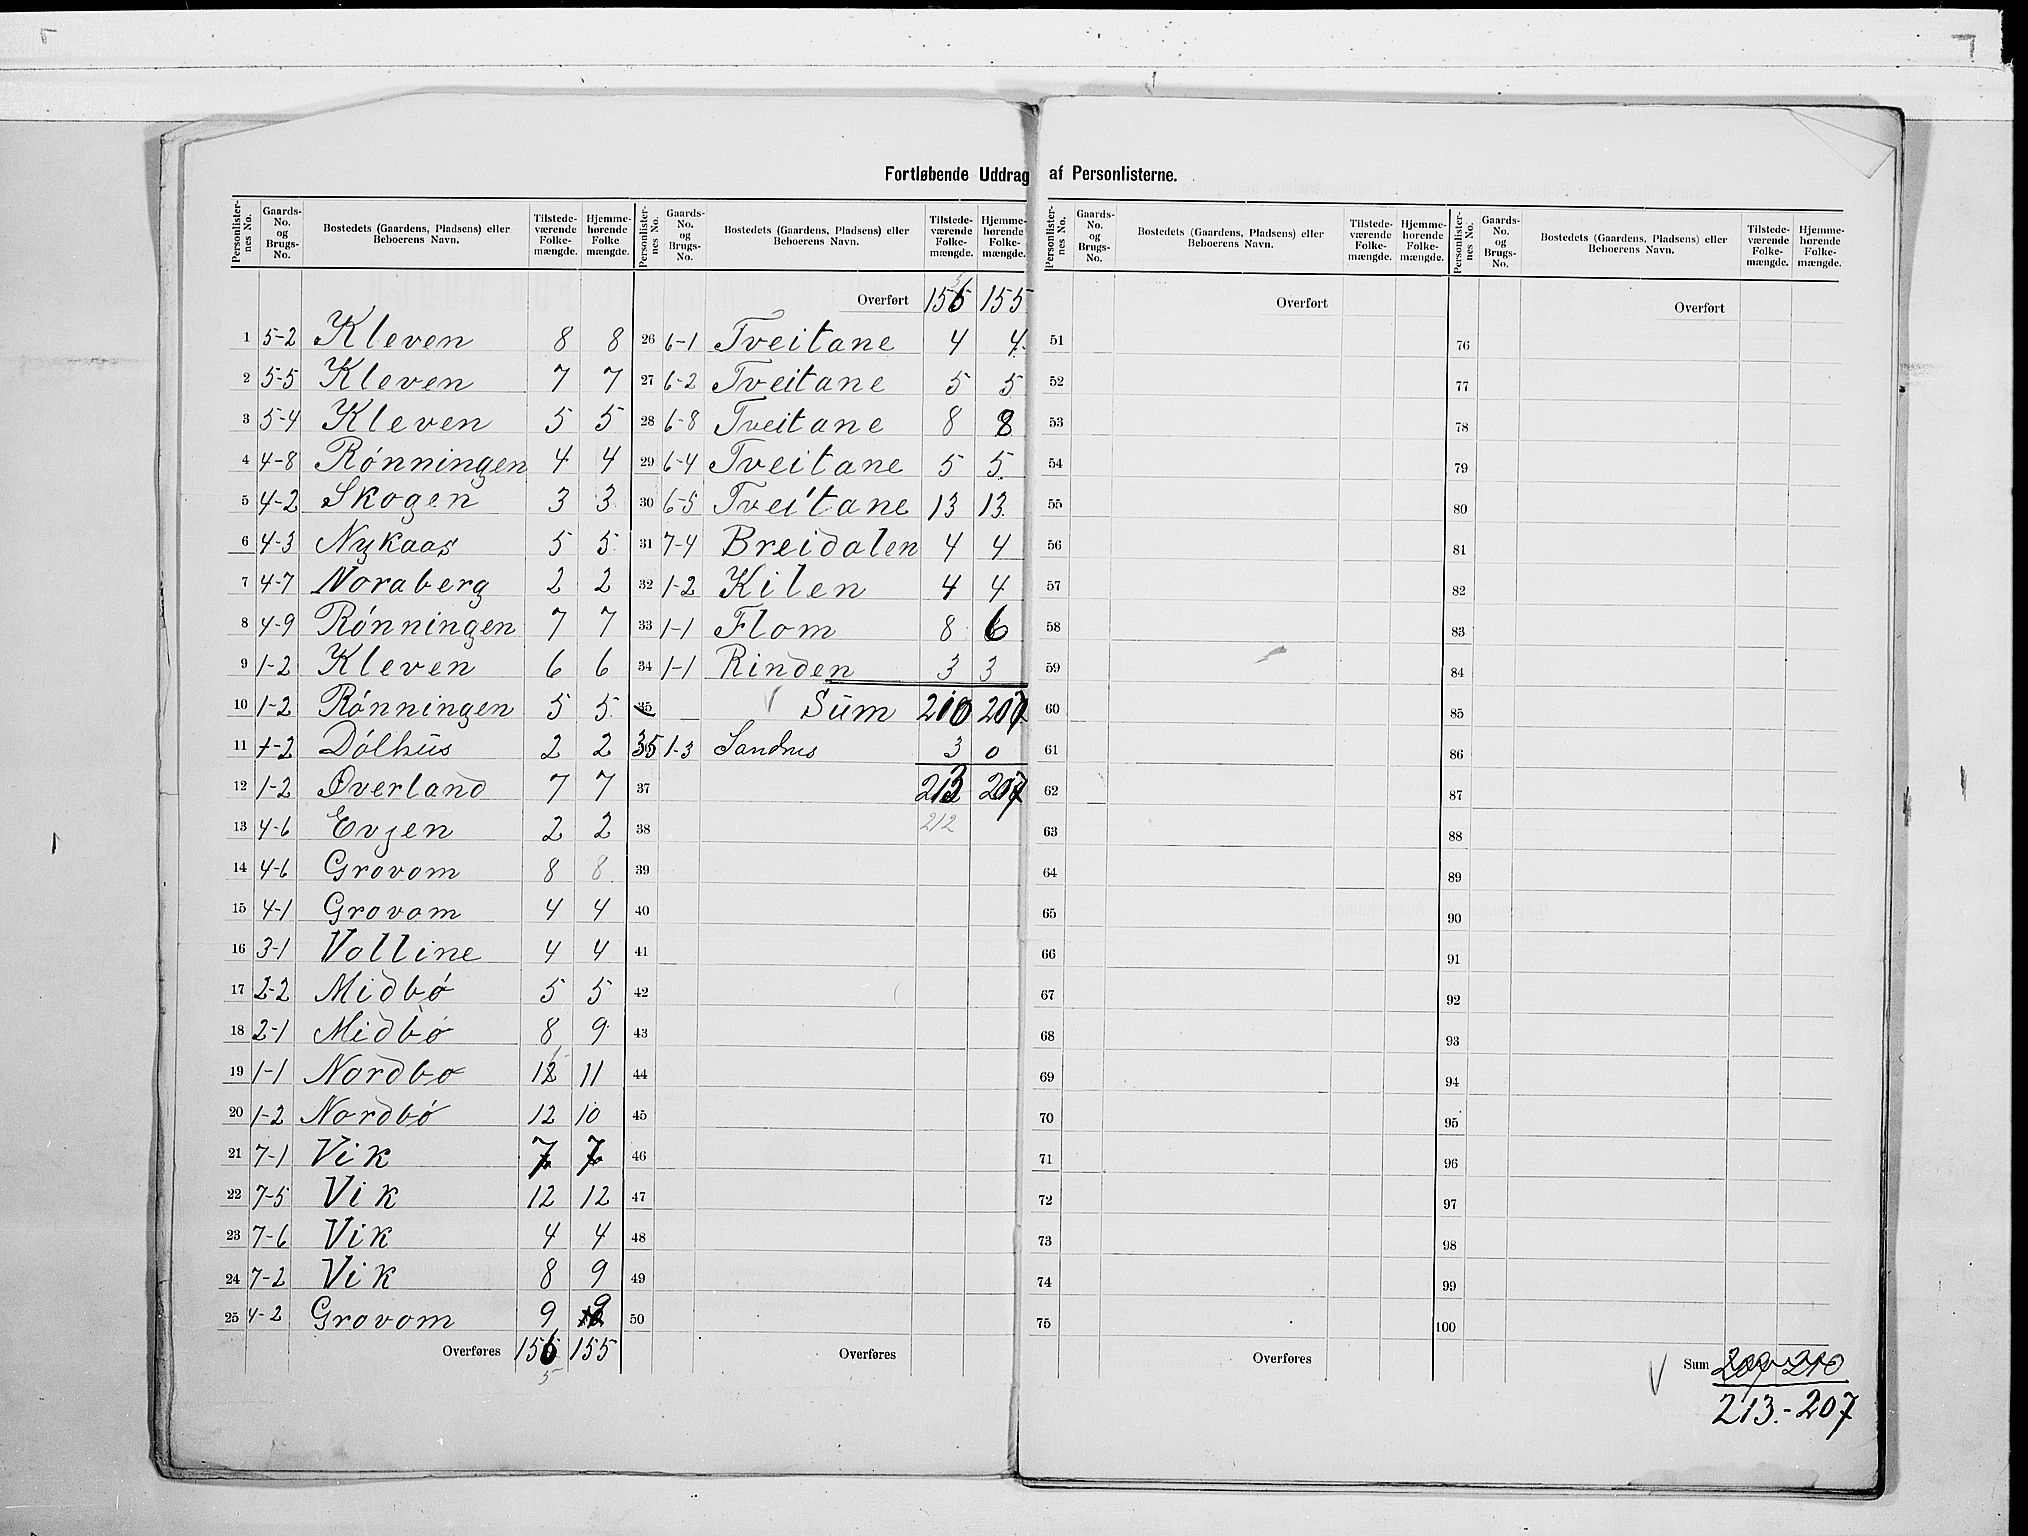 Fortløbende Uddrag af Personlisterne.
Personlisternes No. | Gaards-No. og Brugs-No. | Bostedets (Gaardens, Pladsens) eller Beboerens Navn. | Tilstedeværende Folkemængde. | Hjemmehørende Folkemængde.
1 5-2 Kleven 8 8
2 5-5 Kleven 7 7
3 5-4 Kleven 5 5
4 4-8 Rønningen 4 4
5 4-2 Skogen 3 3
6 4-3 Nykaas 5 5
7 4-7 Noraberg 2 2
8 4-9 Rønningen 7 7
9 1-2 Kleven 6 6
10 1-2 Rønningen 5 5
11 1-2 Dølhus 2 2
12 1-2 Øverland 7 7
13 4-6 Evjen 2 2
14 4-6 Gravom 8 8
15 4-1 Gravom 4 4
16 3-1 Valline 4 4
17 2-2 Midbø 5 5
18 2-1 Midbø 8 9
19 1-1 Nordbø 12 11
20 1-2 Nordbø 12 10
21 7-1 Vik 7 7
22 7-5 Vik 12 12
23 7-6 Vik 4 4
24 7-2 Vik 8 9
25 4-2 Gravom 9 9
Overføres 156 155
5
Personlisternes No. | Gaards-No. og Brugs-No. | Bostedets (Gaardens, Pladsens) eller Beboerens Navn. | Tilstedeværende Folkemængde. | Hjemmehørende Folkemængde.
Overført 156 155
26 6-1 Tveitane 4 4
27 6-2 Tveitane 5 5
28 6-8 Tveitane 8 8
29 6-4 Tveitane 5 5
30 6-5 Tveitane 13 13
31 7-4 Breidalen 4 4
32 1-2 Kilen 4 4
33 1-1 Flom 8 6
34 1-1 Rinden 3 3
35 Sum 210 207
35 1-3 Sandnes 3 0
37 213 207
38 212
39
40
41
42
43
44
45
46
47
48
49
50
Overføres
Personlisternes No. | Gaards-No. og Brugs-No. | Bostedets (Gaardens, Pladsens) eller Beboerens Navn. | Tilstedeværende Folkemængde. | Hjemmehørende Folkemængde.
Overført
51
52
53
54
55
56
57
58
59
60
61
62
63
64
65
66
67
68
69
70
71
72
73
74
75
Overføres
Personlisternes No. | Gaards-No. og Brugs-No. | Bostedets (Gaardens, Pladsens) eller Beboerens Navn. | Tilstedeværende Folkemængde. | Hjemmehørende Folkemængde.
Overført
76
77
78
79
80
81
82
83
84
85
86
87
88
89
90
91
92
93
94
95
96
97
98
99
100
Sum
213.-207